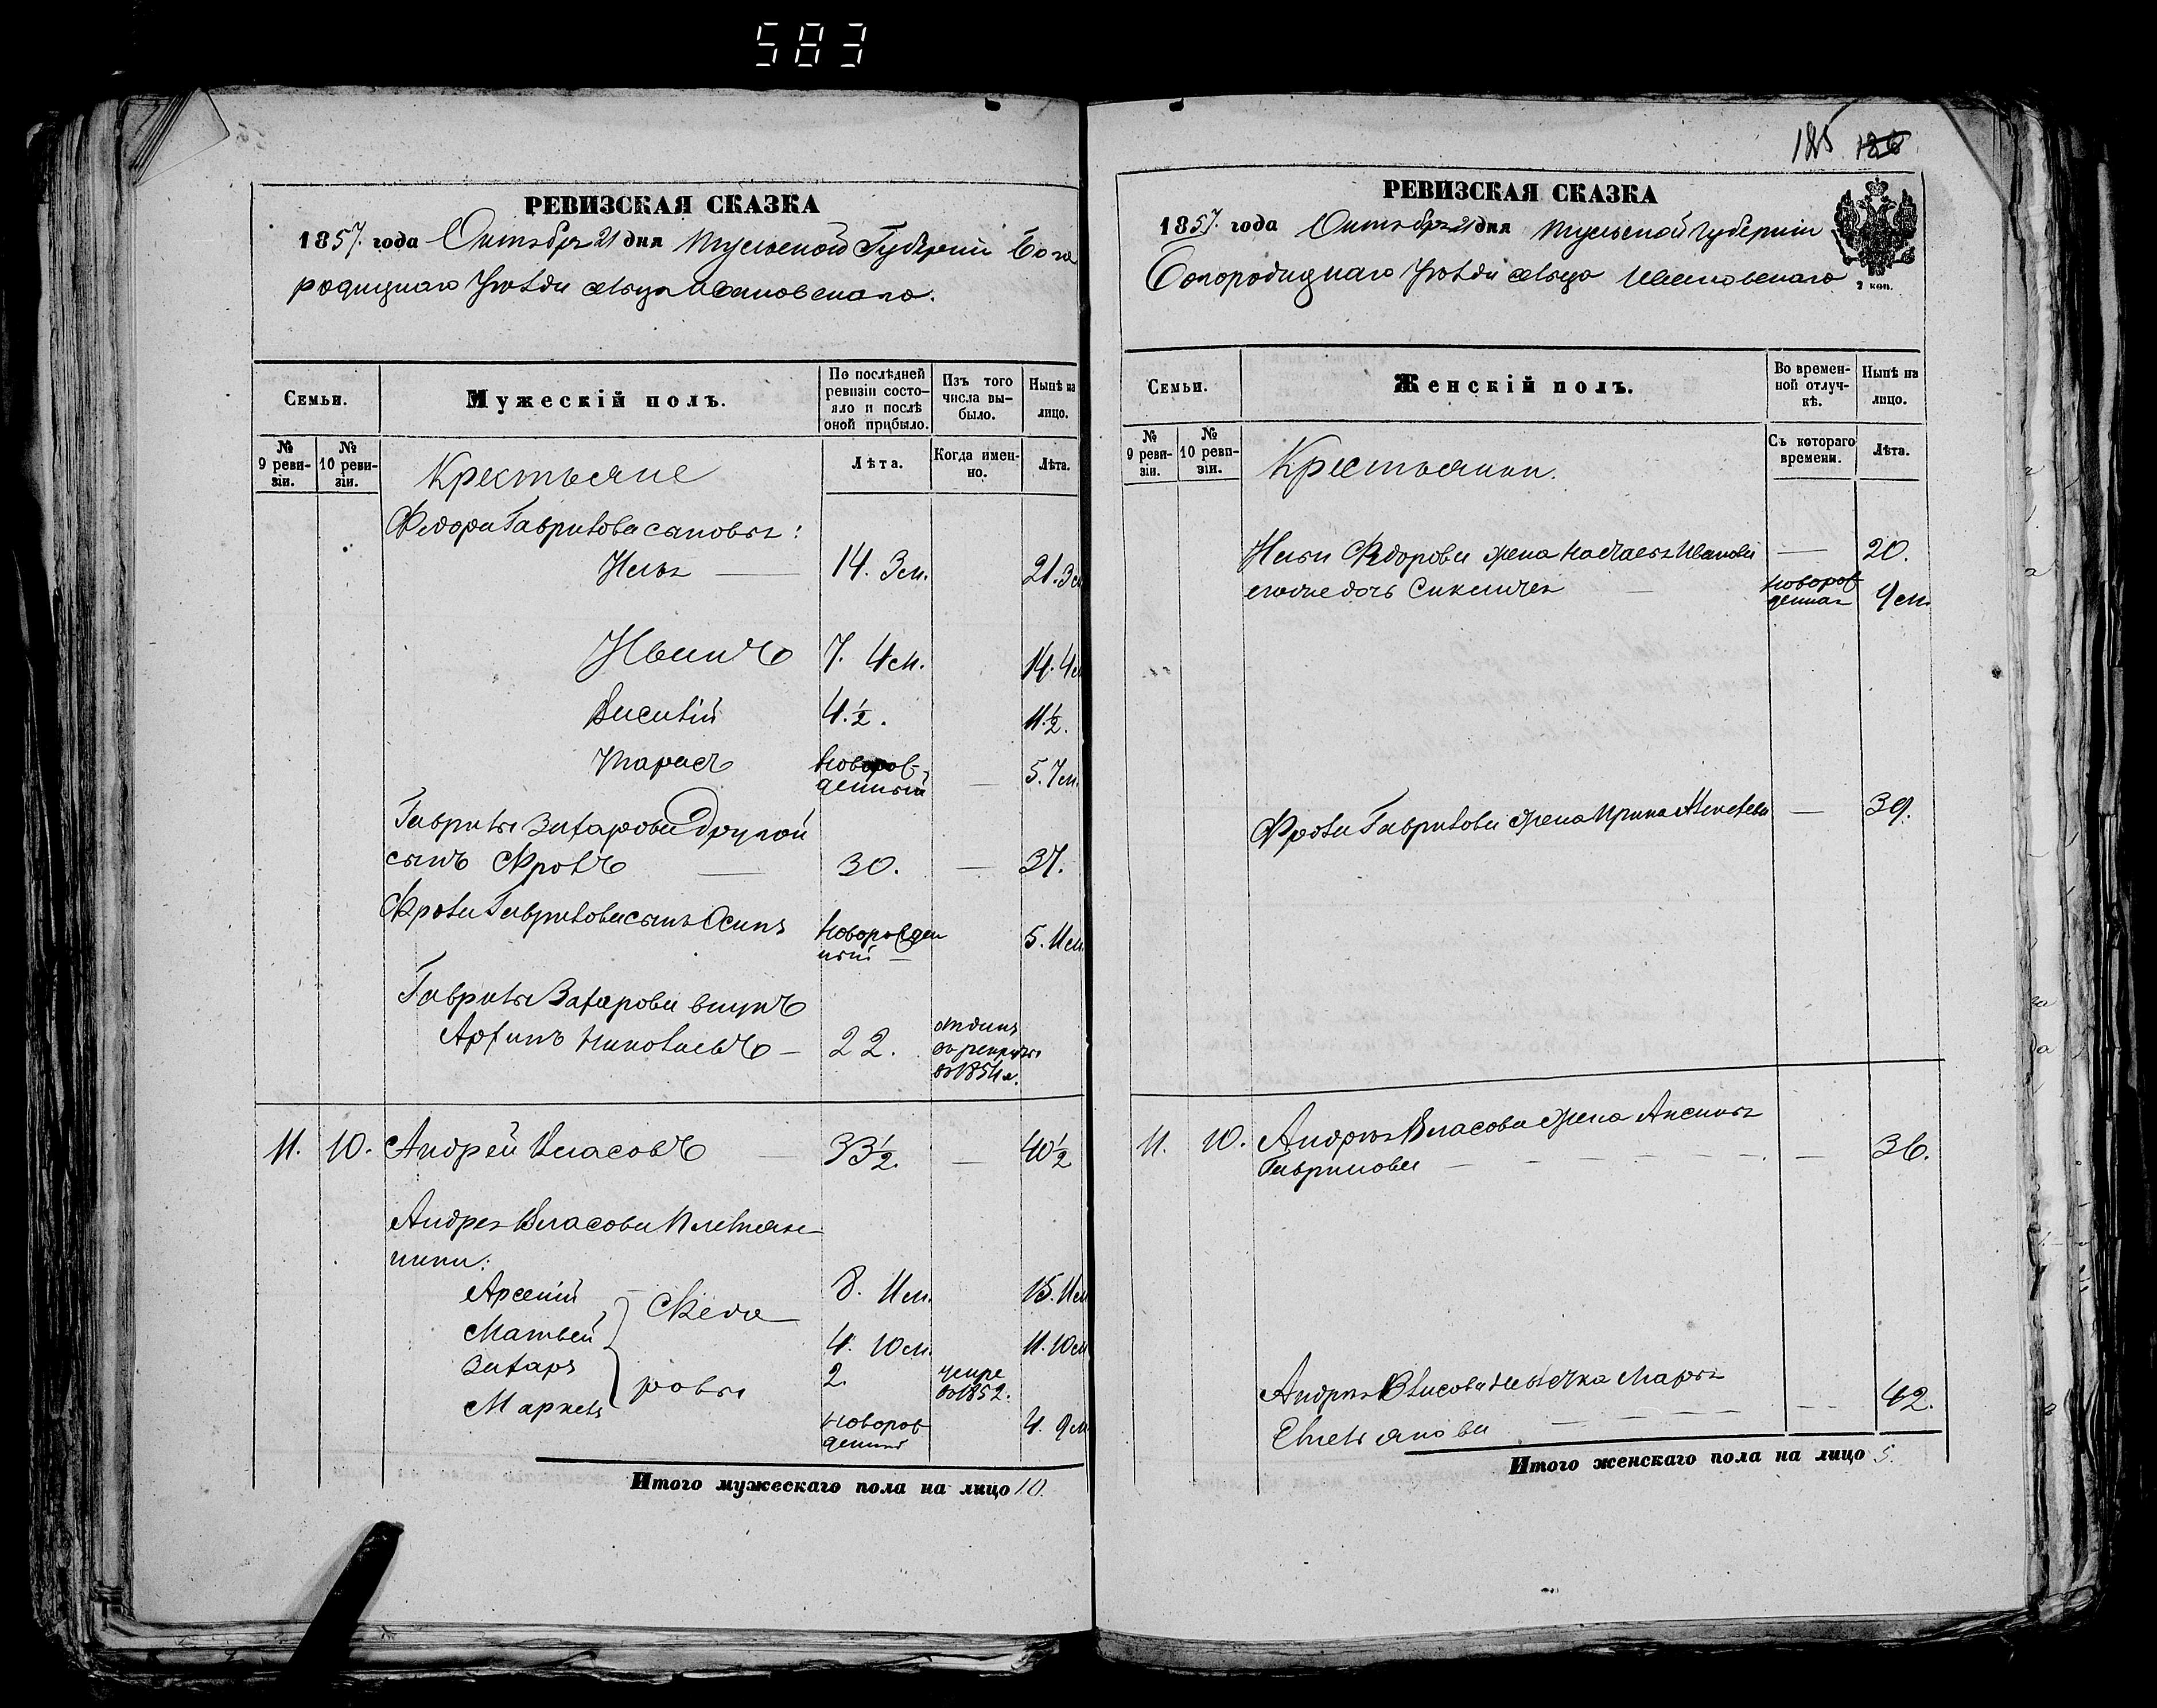 583
185 186
РЕВИЗСКАЯ СКАЗКА
1857. года Октября 21 дня Тульской Губерніи Бого
родицкаго Уѣзда сельца Ивановскаго.
Семьи.
Мужескій полъ.
По послѣдней ревизіи состояло и послѣ оной прибыло.
Изъ того числа выбыло.
Нынѣ на лицо.
№ 9 ревизіи.
№ 10 ревизіи.
Крестьяне
Лѣта.
Когда именно.
Лѣта.
Федора Гаврилова сыновья:
Илья — 14. 3м. 21. 3м
Иванъ 7. 4м. 14. 4м
Василій 4.½. 11.½.
Тарасъ новорож-
денный — 5. 7м.
Гаврилы Захарова другой
сынъ Фролъ — 30. — 37.
Фрола Гаврилова сынъ Осипъ новорожден
ный — 5. 11м
Гаврилы Захарова внукъ
Архипъ Николаевъ — 22. отданъ
въ рекруты
въ 1854 г.
11. 10. Андрей Власовъ — 33½. — 40½
Андрея Власова племян-
ники:
Арсеній 8. 11м. 15. 11м
Матвей 4. 10м. 11. 10м
Захаръ 2. умре
въ 1852.
Маркелъ новорож
денный 4. 9м
Федо
ровы
Итого мужескаго пола на лицо 10.
РЕВИЗСКАЯ СКАЗКА
1857. года Октября 21 дня Тульской Губерніи
Богородицкаго Уѣзда сельца Ивановскаго
2 коп.
Семьи.
Женскій полъ.
Во временной отлучкѣ.
Нынѣ на лицо.
№ 9 ревизіи.
№ 10 ревизіи.
Крестьянки.
Съ котораго времени.
Лѣта.
Ильи Федорова жена Настасья Иванова — 20.
его же дочь новорож
денная 9м
Фрола Гаврилова жена Ирина Алексеева — 39.
11. 10. Андрея Власова жена Аксинья
Гаврилова — — 36.
Андрея Власова невѣстка Марья
Емельянова — — 42.
Итого женскаго пола на лицо 5.